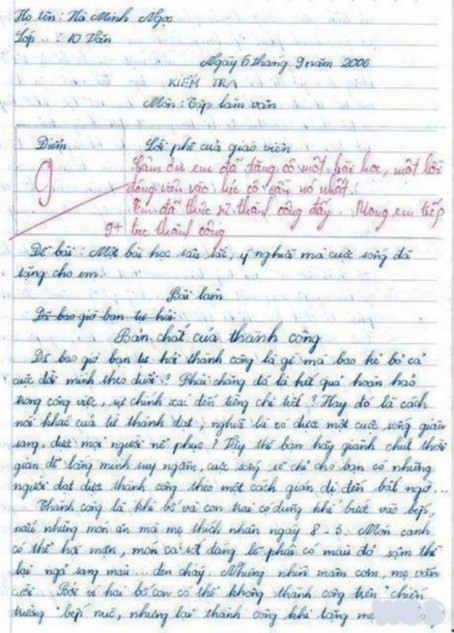 Họ tên: Hà Minh Ngọc
Lớp: 10 Văn
Ngày 6 tháng 9 năm 2006
KIỂM TRA
Môn: Tập làm văn
Điểm
Lời phê của giáo viên
9
Cảm ơn em đã tặng cô một bài học, một lời
động viên vào lúc cô cần nó nhất.
Em đã thực sự thành công đấy. Mong em tiếp
9+ tục thành công
Đề bài: Một bài học sâu sắc, ý nghĩa mà cuộc sống đã
tặng cho em.
Bài làm
Đã bao giờ bạn tự hỏi
Bản chất của thành công
Đã bao giờ bạn tự hỏi thành công là gì mà bao kẻ bỏ cả
cuộc đời mình theo đuổi? Phải chăng đó là kết quả hoàn hảo
trong công việc, sự chính xác đến từng chi tiết? Hay đó là cách
nói khác của từ thành đạt, nghĩa là có được một cuộc sống giàu
sang, được mọi người nể phục? Vậy thì bạn hãy giành chút thời
gian để lắng mình suy ngẫm, cuộc sống sẽ chỉ cho bạn có những
người đạt được thành công theo một cách giản dị đến bất ngờ...
Thành công là khi bố và con trai có dũng khí bước vào bếp,
nấu những món ăn mà mẹ thích nhân ngày 8-3. Món canh
có thể hơi mặn, món cá sốt đáng lẽ phải có màu đỏ sậm thì
lại ngả sang màu... đen cháy. Nhưng nhìn mâm cơm, mẹ vẫn
cười. Bởi vì hai bố con có thể không thành công trên "chiến
trường" bếp núc, nhưng lại thành công khi tặng mẹ